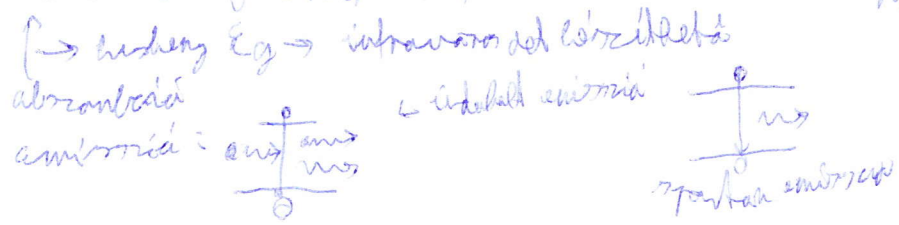 → keskeny Eg → infravörös det készíthető
abszorbció
emisszió:
↳ indukált emisszió
spontán emisszió